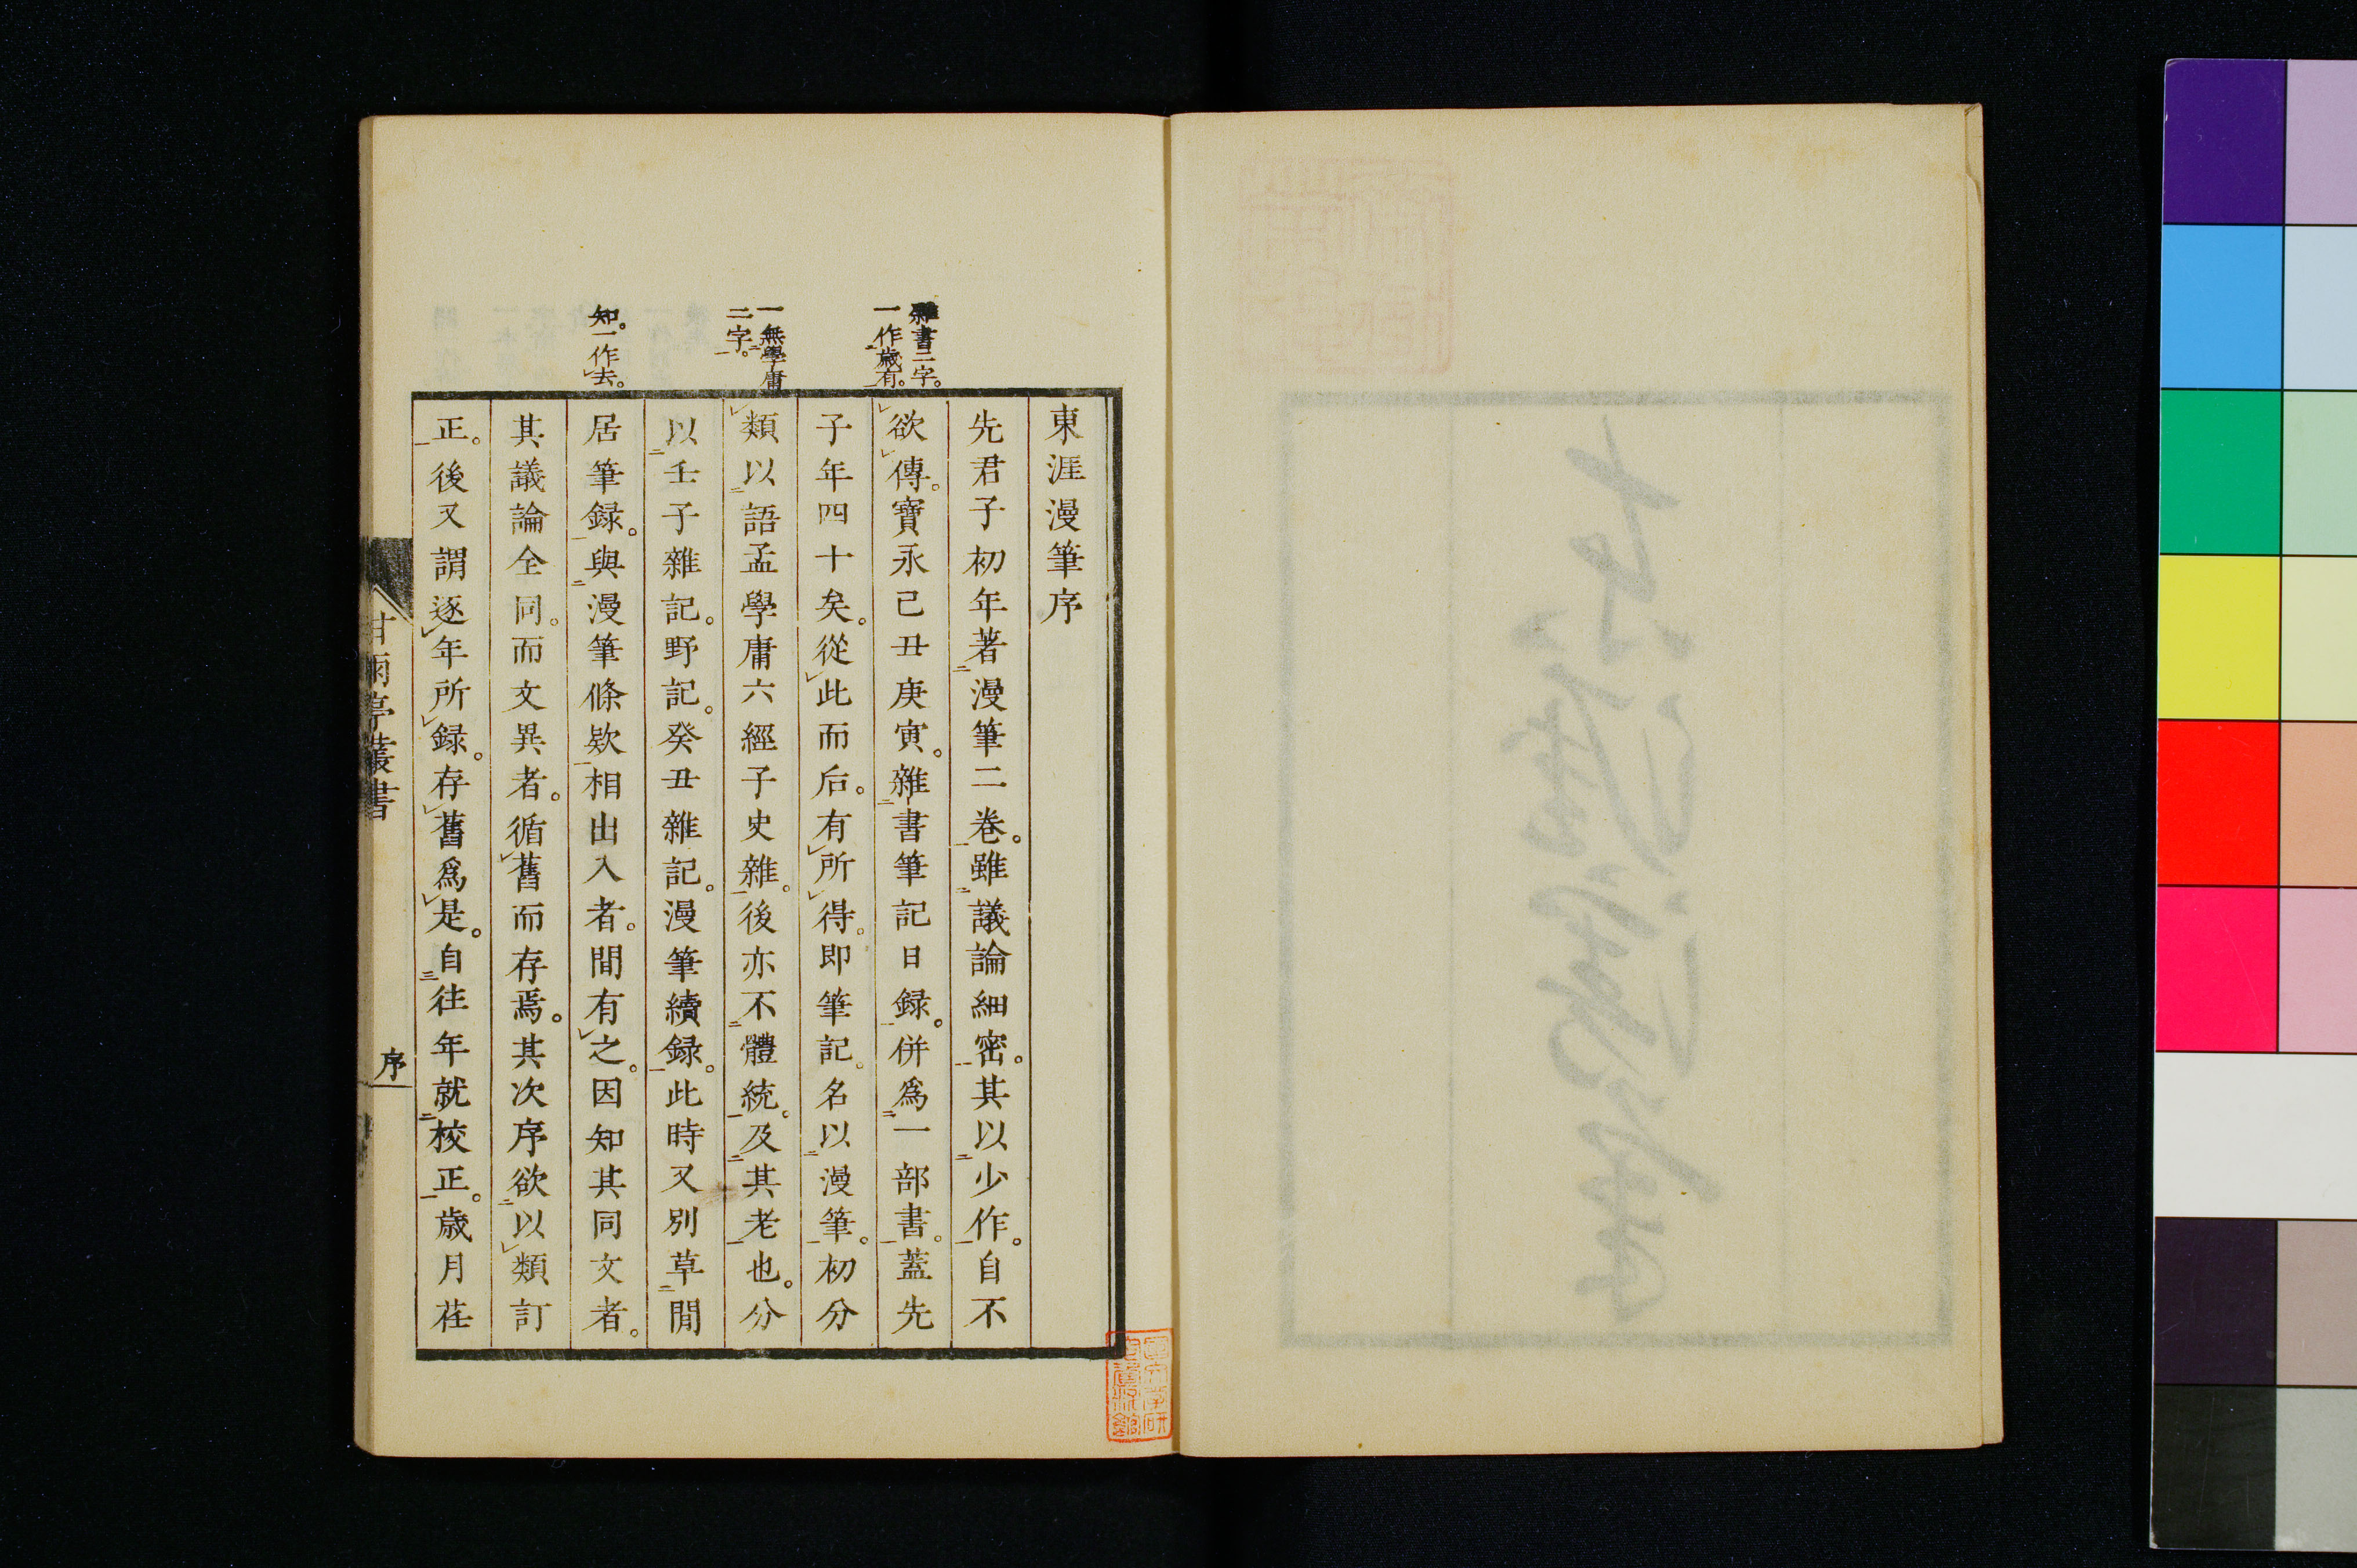 東涯漫筆序
先君子初年著漫筆二卷。雖議論細密。其以少作。自不
欲傳。寶永己丑庚寅。雜書筆記日録。併爲一部書。蓋先
子年四十矣。從此而后。有所得。即筆記。名以漫筆。初分
類以語孟學庸六經子史雜。後亦不體統。及其老也。分
以壬子雜記。野記。癸丑雜記。漫筆續録。此時又別草閒
居筆録。與漫筆條欵相出入者。間有之。因知其同文者。
其議論全同。而文異者。循舊而存焉。其次序欲以類訂
正。後又謂逐年所録。存舊爲是。自往年就校正。歳月荏
雜書二字。
一作歳有。
一無學庸
二字。
知。一作去。
甘雨亭叢書
序